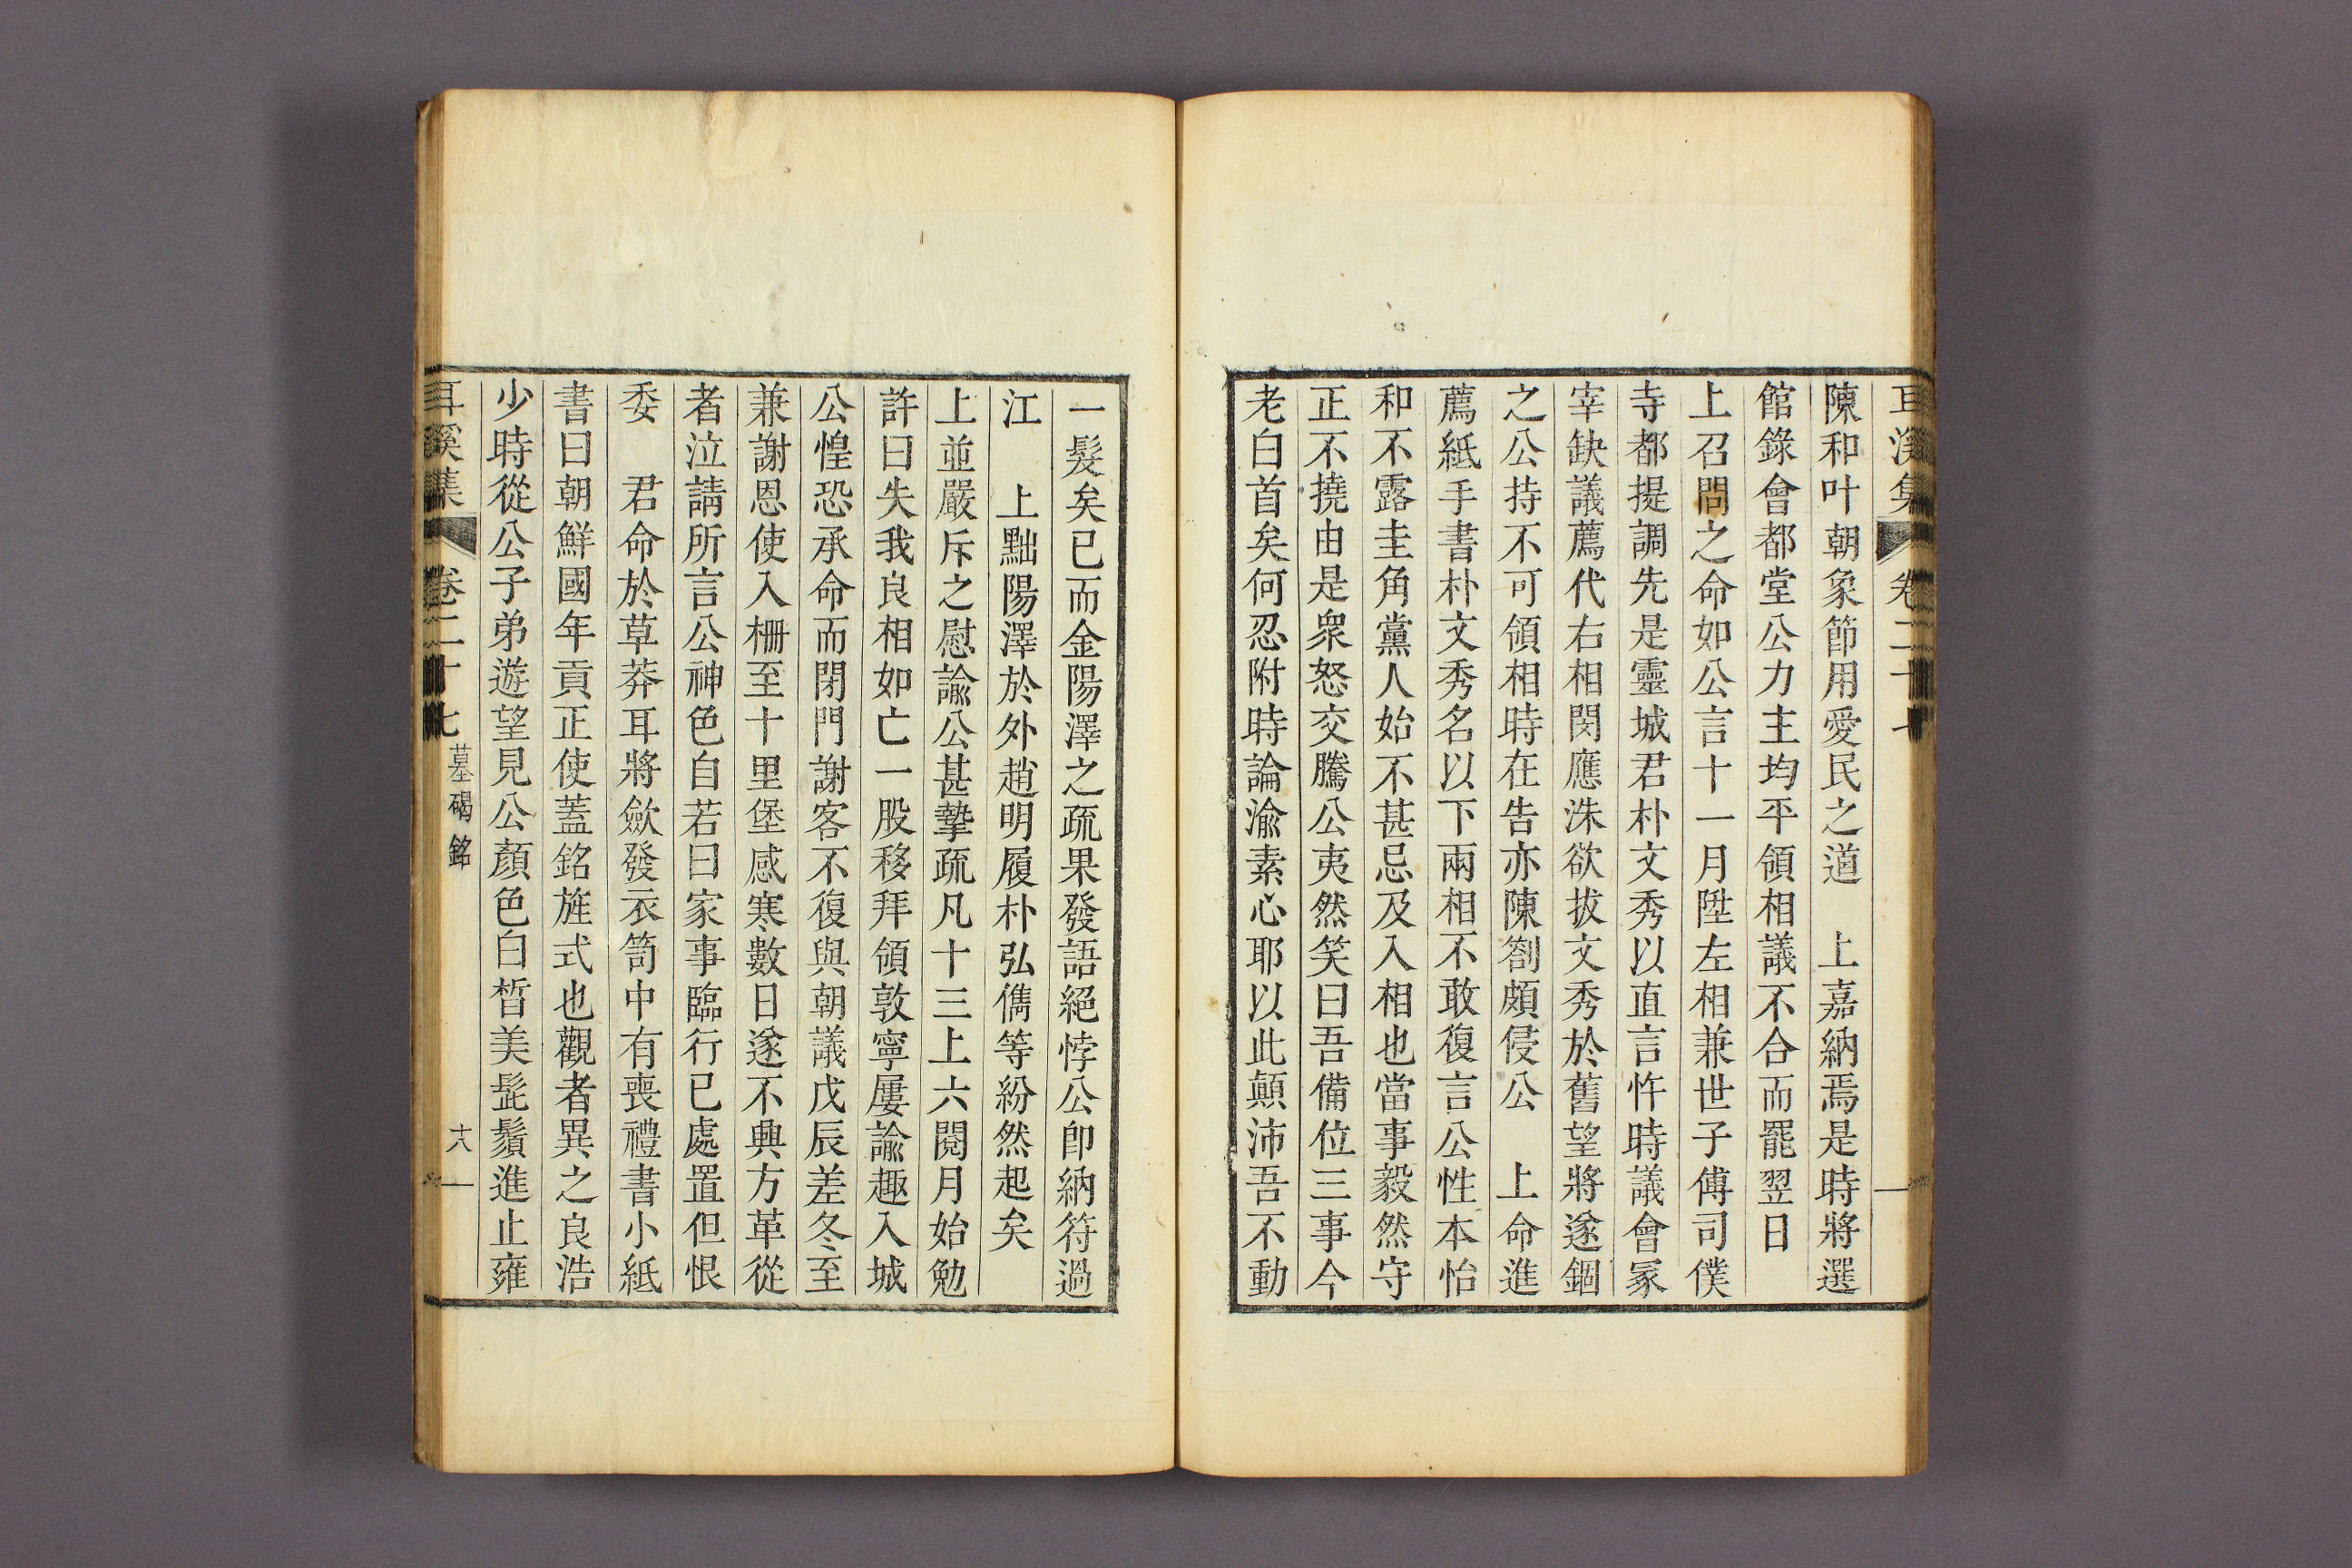 耳溪集 卷二十七
陳和叶朝象節用愛民之道 上嘉納焉是時將選
館錄會都堂公力主均平領相議不合而罷翌日
上召問之命如公言十一月陞左相兼世子傅司僕
寺都提調先是靈城君朴文秀以直言忤時議會冢
宰缺議薦代右相閔應洙欲拔文秀於舊望將遂錮
之公持不可領相時在告亦陳劄頗侵公 上命進
薦紙手書朴文秀名以下兩相不敢復言公性本怡
和不露圭角黨人始不甚忌及入相也當事毅然守
正不撓由是衆怒交騰公夷然笑曰吾備位三事今
老白首矣何忍附時論渝素心耶以此顚沛吾不動
一髮矣已而金陽澤之疏果發語絕悖公卽納符過
江 上黜陽澤於外趙明履朴弘儁等紛然起矣
上並嚴斥之慰諭公甚摯疏凡十三上六閱月始勉
許曰失我良相如亡一股移拜領敦寧屢諭趣入城
公惶恐承命而閉門謝客不復與朝議戊辰差冬至
兼謝恩使入柵至十里堡感寒數日遂不興方革從
者泣請所言公神色自若曰家事臨行已處置但恨
委 君命於草莽耳將歛發衣笥中有喪禮書小紙
書曰朝鮮國年貢正使蓋銘旌式也觀者異之良浩
少時從公子弟遊望見公顏色白皙美髭鬚進止雍
耳溪集 卷二十七 墓碣銘 十八